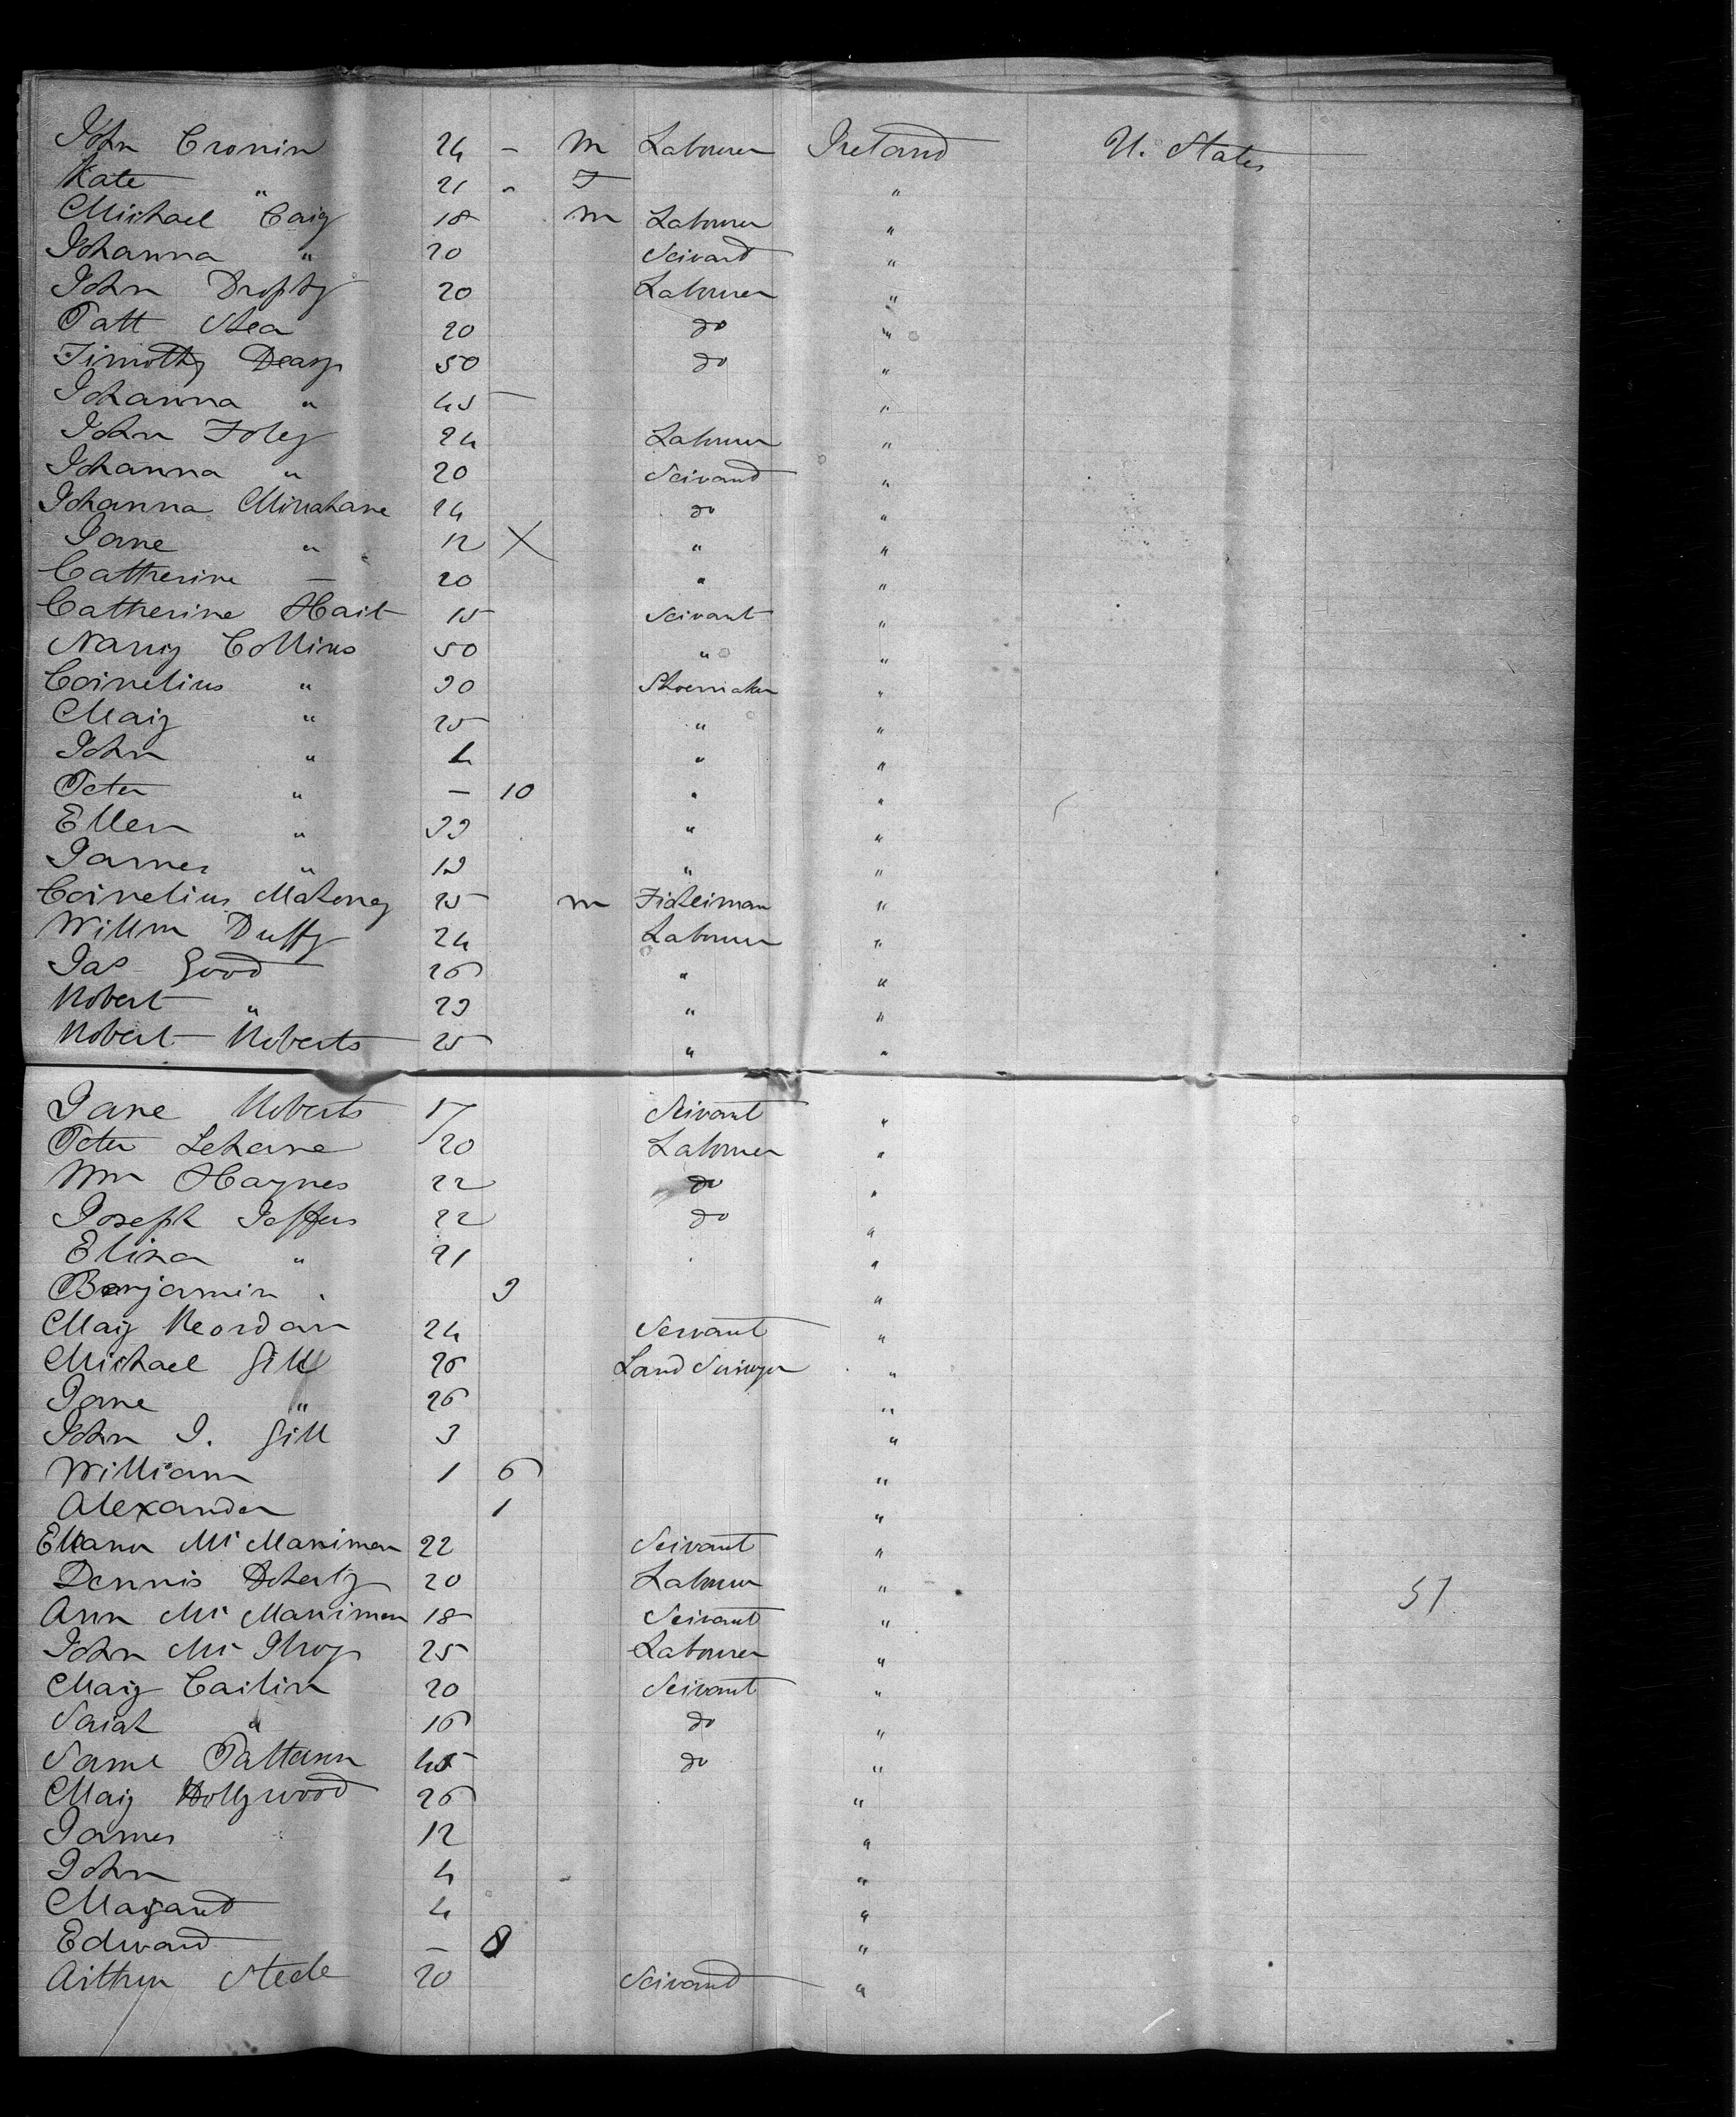 John Cronin 24 - M Labourer Ireland U. States
Kate " 21 - F "
Michael Carey 18 M Labourer "
Johanna " 20 Servant "
John Brophy 20 Labourer "
Patt Shea 20 do "
Timothy Deasy 50 do "
Johanna " 45 "
John Foley 24 Labourer "
Johanna " 20 Servant "
Johanna Minahane 24 do "
Jane " 12 X " "
Catherine — 20 " "
Catherine Hart 15 Servant "
Nancy Collins 50 " "
Cornelius " 30 Shoemaker "
Mary " 25 " "
John " 4 " "
Peter " — 10 " "
Ellen " 33 " "
James " 13 " "
Cornelius Mahoney 25 M Fisherman "
Willm Duffy 24 Labourer "
Jas Good 26 " "
Robert " 23 " "
Robert Roberts 25 " "
Jane Roberts 17 Servant "
Peter Lehane 20 Labourer "
Wm Haynes 22 do "
Joseph Jeffers 22 do "
Eliza " 21 "
Benjamin " 3 "
Mary Reordan 24 Servant "
Michael Gill 26 Land Surveyor "
Jane " 26 "
John J. Gill 3 "
William 1 6 "
Alexander 1 "
Elleanor Mc Manimen 22 Servant "
Dennis Doherty 20 Labourer " 51
Ann Mc Manimen 18 Servant "
John Mc Ilroy 25 Labourer "
Mary Carlin 20 Servant "
Sarah " 16 do "
Saml Pattann 45 do "
Mary Hollywood 26 "
James 12 "
John 4 "
Margaret 4 "
Edward — 8 "
Arthur Steele 20 Servant "